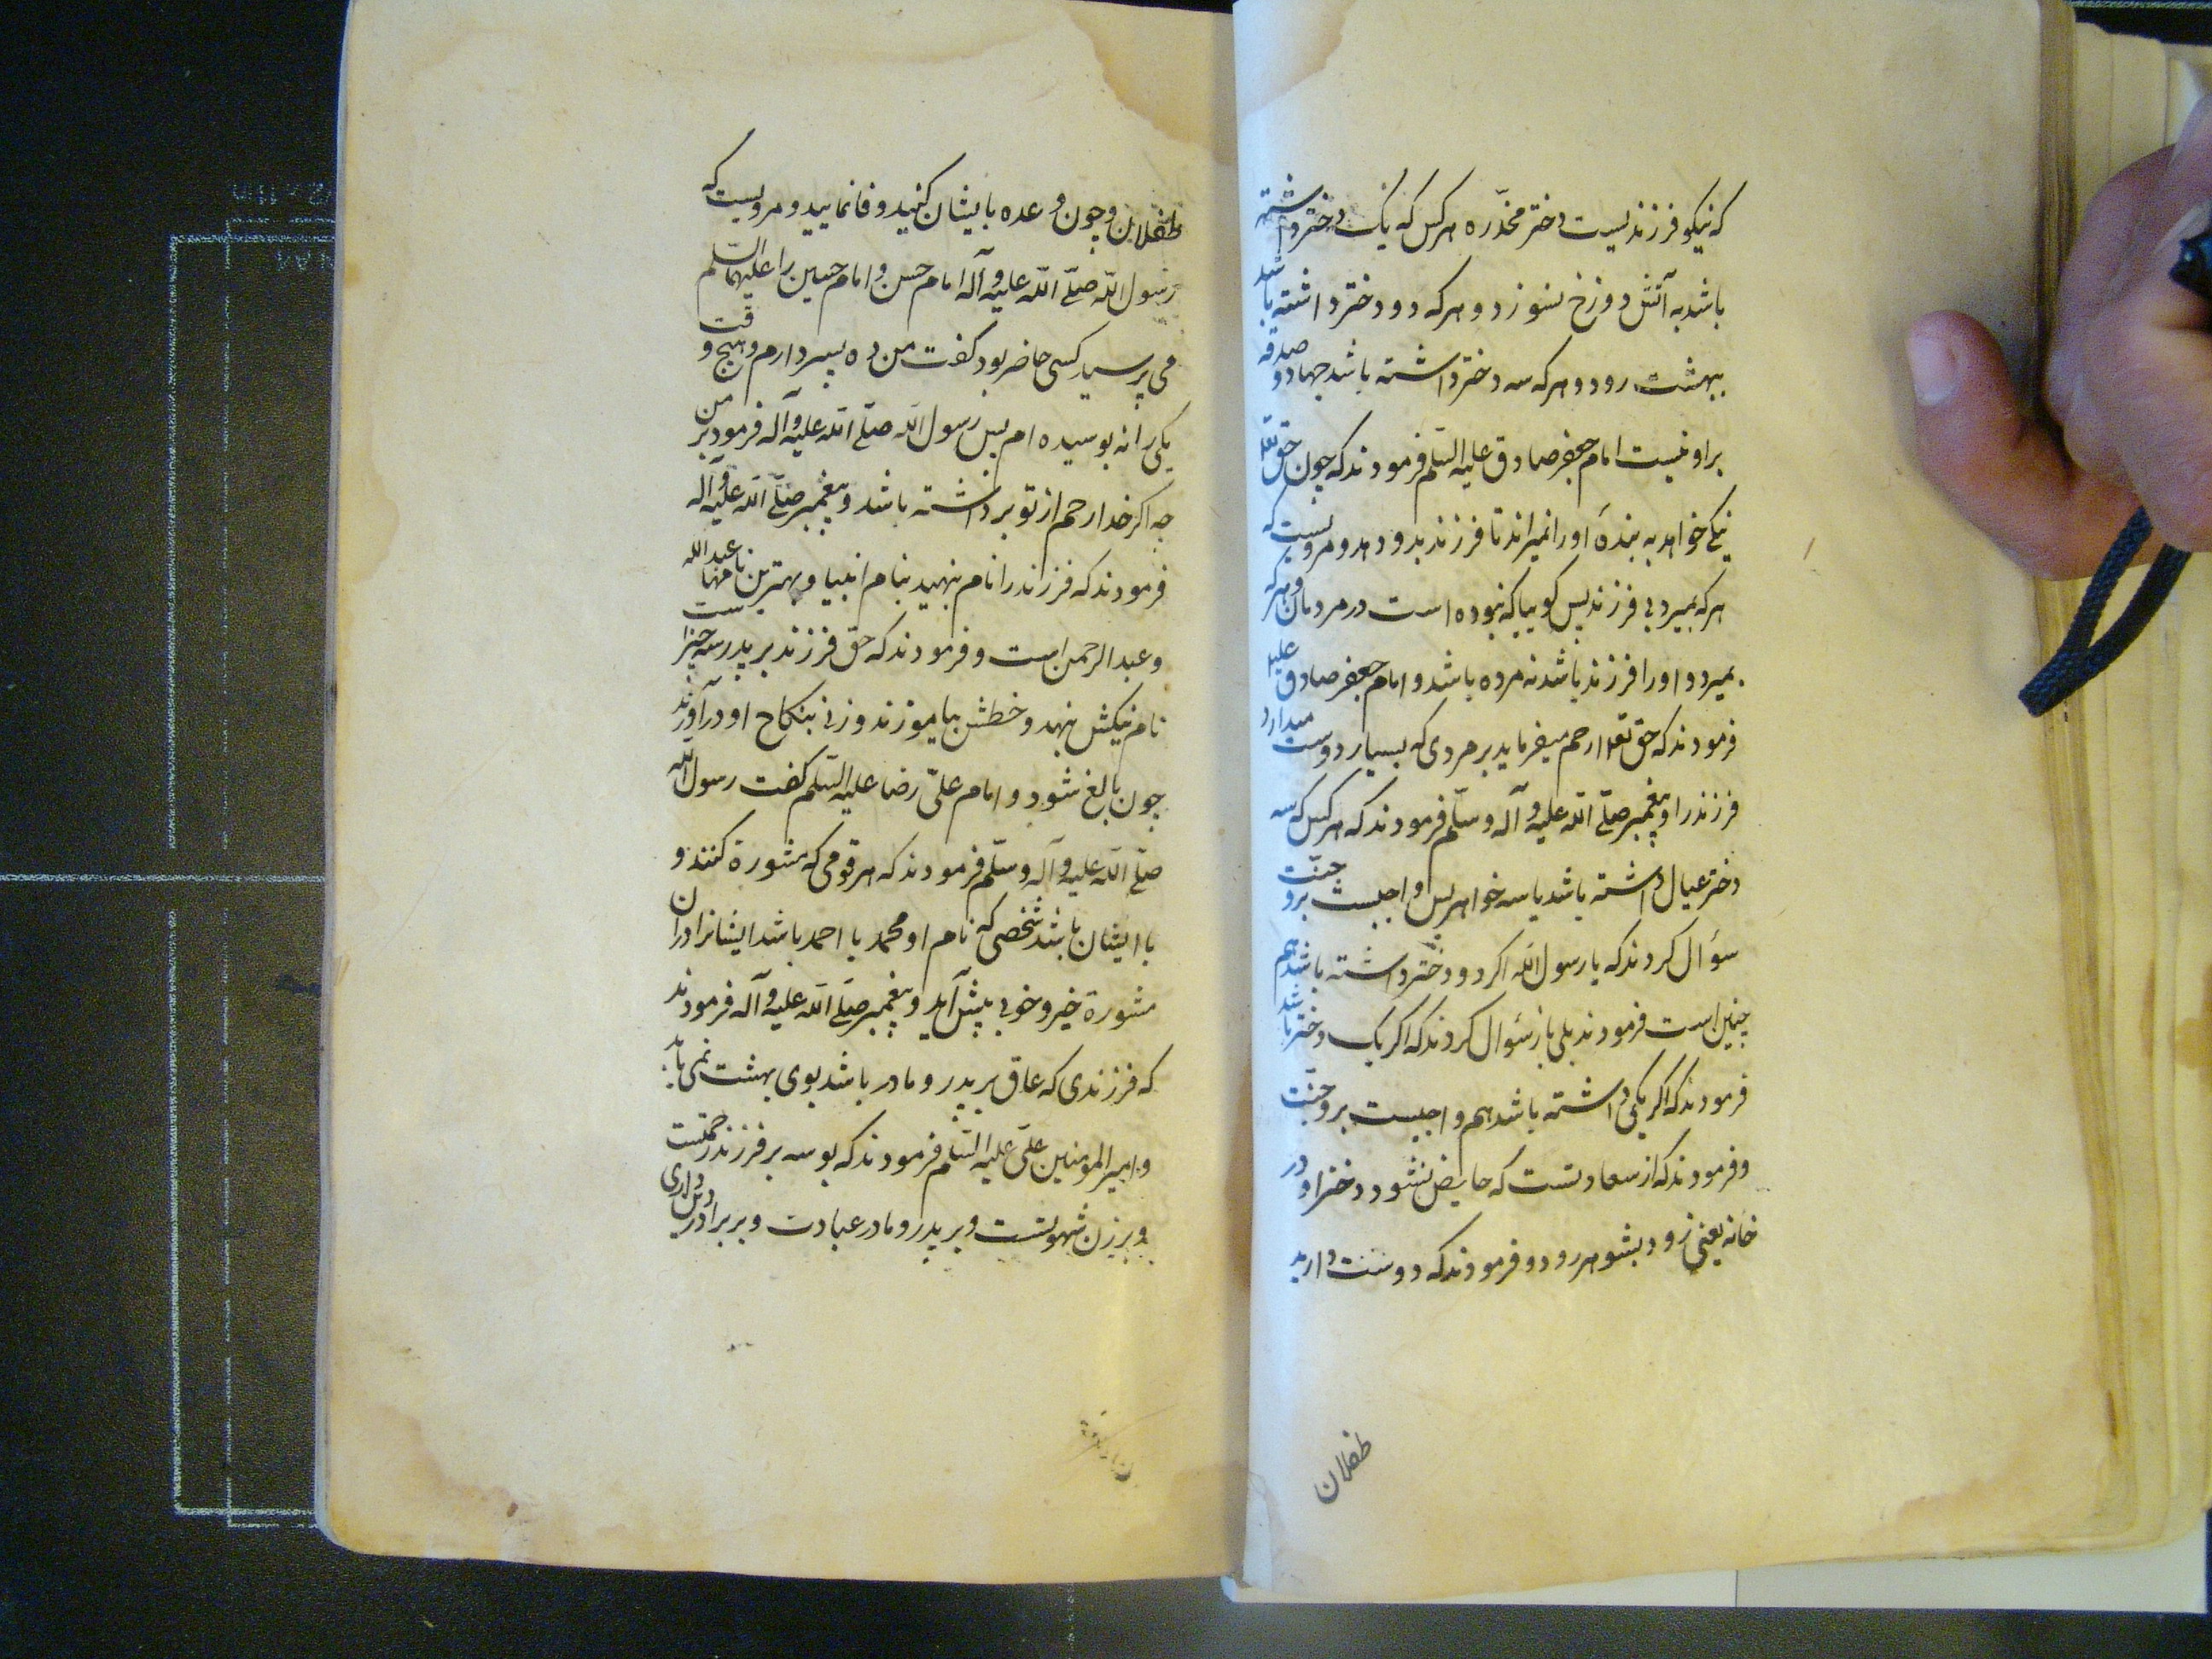 که نیکو فرزندیست دختر مخدّره هر کس که یک دختر داشته
باشد به آتش دوزخ نسوزد و هر که دو دختر داشته باشد
ببهشت رود و هر که سه دختر داشته باشد جهاد و صدقه
بر او نیست امام جعفر صادق علیه السّلم فرمودند که چون حق تعلا
نیکی خواهد به بندهٔ او را نمیراند تا فرزند بدو دهد و مرویست که
هر که بمیرد بی فرزند پس گوییا که نبوده است در مردمان و هر که
بمیرد و او را فرزند باشد نه مرده باشد و امام جعفر صادق علیه
فرمودند که حق تعلا رحم میفرماید بر مردی که بسیار دوست میدارد
فرزند را و پیغمبر صلّے اللّه علیه و آله و سلّم فرمودند که هر کس که سه
دختر عیال داشته باشد یا سه خواهر پس واجبست برو جنّت
سؤال کردند که یا رسول اللّه اکر دو دختر داشته باشد هم
چنین است فرمودند بلی باز سؤال کردند که اکر یک دختر باشد
فرمودند که اکر یکی داشته باشد هم واجبست برو جنّت
و فرمودند که از سعادتست که حایض نشود دختر او در
خانه یعنی زود بشوهر رود و فرمودند که دوست دارید
طفلان
طفلان و چون وعده بایشان کنید وفا نمایید و مرویست که
رسول اللّه صلّے اللّه علیه و آله امام حسن و امام حسین را علیهما السّلم
می پرسید کسی حاضر بود کفت من ده پسر دارم و هیچ وقت
یکی را نه بوسیده ام پس رسول اللّه صلّے اللّه علیه و آله فرمود بر من
چه اکر خدا رحم از تو برداشته باشد و پیغمبر صلّے اللّه علیه و آله
فرمودند که فرزند را نام بنهید بنام انبیا و بهترین نامها عبد اللّه
و عبد الرحمن است و فرمودند که حق فرزند بر پدر سه چیز است
نام نیکش بنهد و خطش بیاموزند و زنی بنکاح او در آورند
چون بالغ شود و امام علیّ رضا علیه السّلم کفت رسول اللّه
صلّے اللّه علیه و آله و سلّم فرمودند که هر قومی که مشورة کنند و
با ایشان باشد شخصی که نام او محمد یا احمد باشد ایشانرا در آن
مشورة خیر و خوبی پیش آید و پیغمبر صلّے اللّه علیه و آله فرمودند
که فرزندی که عاق بر پدر و مادر باشد بوی بهشت نمی یابد
و امیر المومنین علیّ علیه السّلم فرمودند که بوسه بر فرزند رحمتست
و بر زن شهوتست و بر پدر و مادر عبادت و بر برادر دین داری